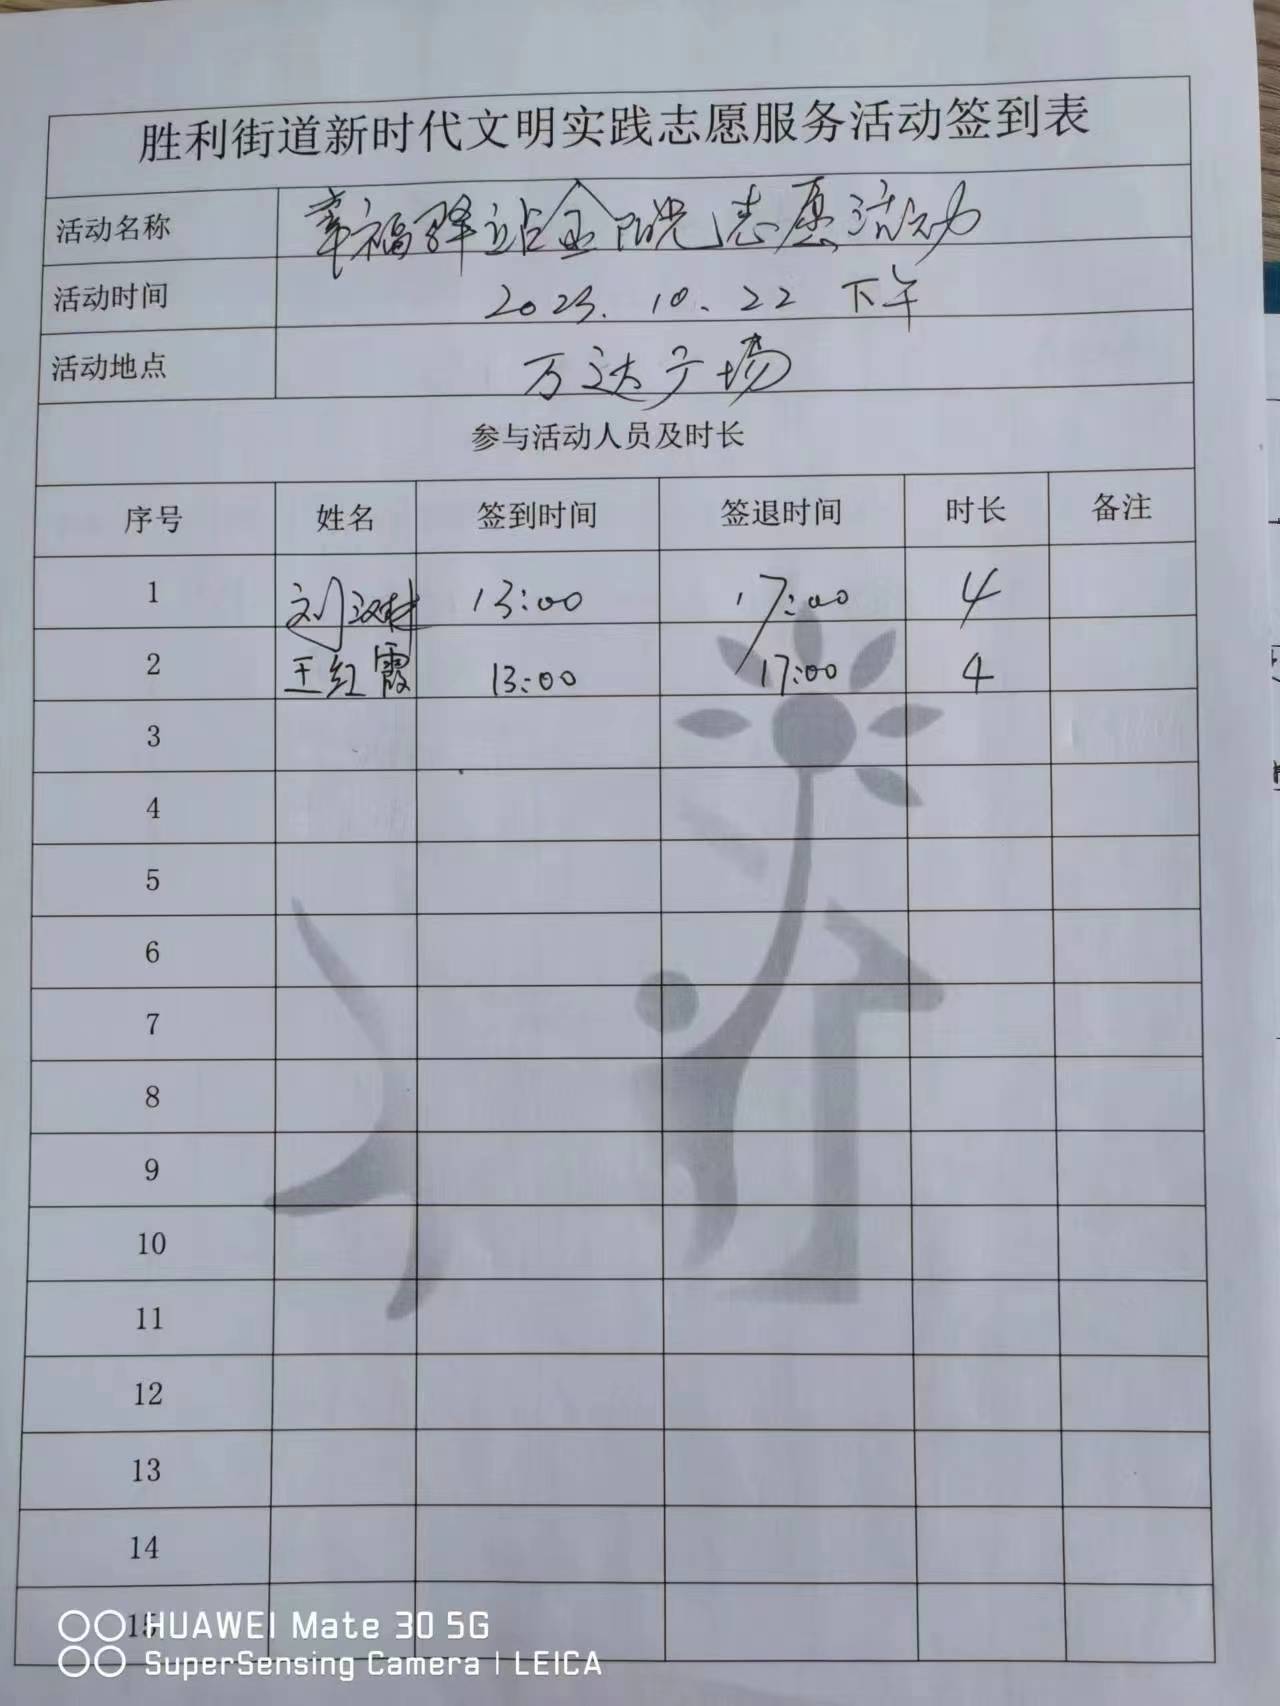 胜利街道新时代文明实践志愿服务活动签到表
活动名称 幸福驿站金阳光志愿活动
活动时间 2023.10.22 下午
活动地点 万达广场
参与活动人员及时长
序号 姓名 签到时间 签退时间 时长 备注
1 刘汉林 13:00 17:00 4
2 王红霞 13:00 17:00 4
3
4
5
6
7
8
9
10
11
12
13
14
15
HUAWEI Mate 30 5G
SuperSensing Camera | LEICA